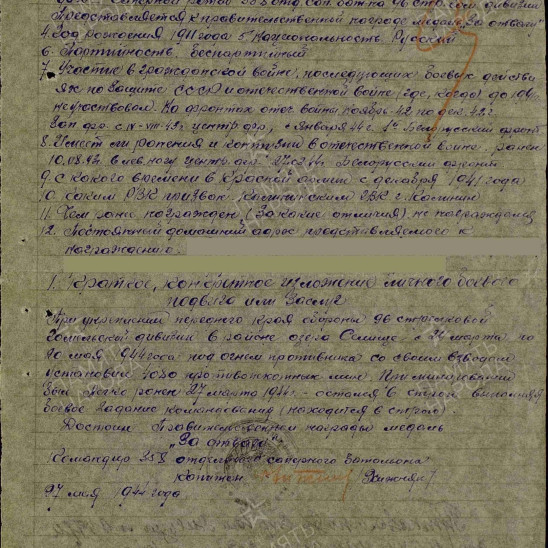 Представляется к правительственной награде медаль "За отвагу"
4. Год рождения 1911 года 5. Национальность Русский
6. Партийность Беспартийный
7. Участие в гражданской войне, последующих боевых действи
ях по защите СССР и отечественной войне (где, когда) до 1941
не участвовал. На фронтах отеч войны ноябрь 42 по дек. 42 г.
8. Имеет ли ранения и контузии в отечественной войне ранен
9. с какого времени в Красной армии с декабря 1941 года
10. Каким РВК призван. Калининским РВК г. Калинин
11. Чем ранее награжден (За какие отличия) не награждался
12. Постоянный домашний адрес представляемого к
награждению.
1. Краткое, конкретное изложение личного боевого
подвига или заслуг
При укреплении переднего края обороны 96 стрелковой
Гомельской дивизии в районе озера с 24 марта по
20 мая 1944 года под огнем противника со своим взводом
установил 1030 противотанковых мин. При минировании
был легко ранен 27 марта 1944 г. остался в строю выполняя
боевое задание командования (находится в строю).
Достоин Правительственной награды медаль
„За отвагу"
Командир отдельного саперного батальона
Капитан
27 мая 1944 года